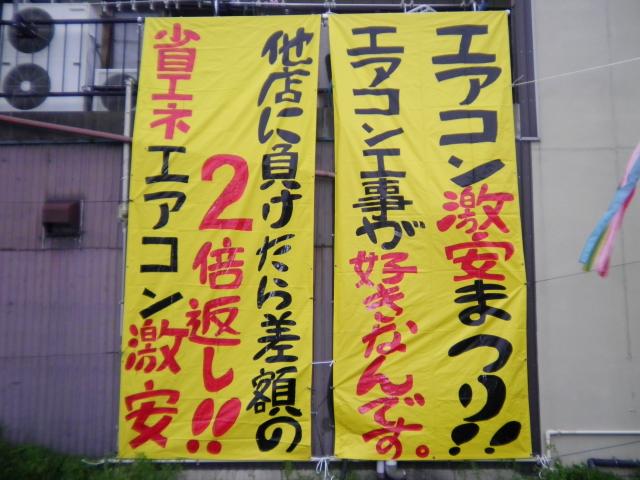 エアコン激安まつり!!
エアコン工事が
好きなんです。
他店に負けたら差額の
2倍返し!!
省エネエアコン激安